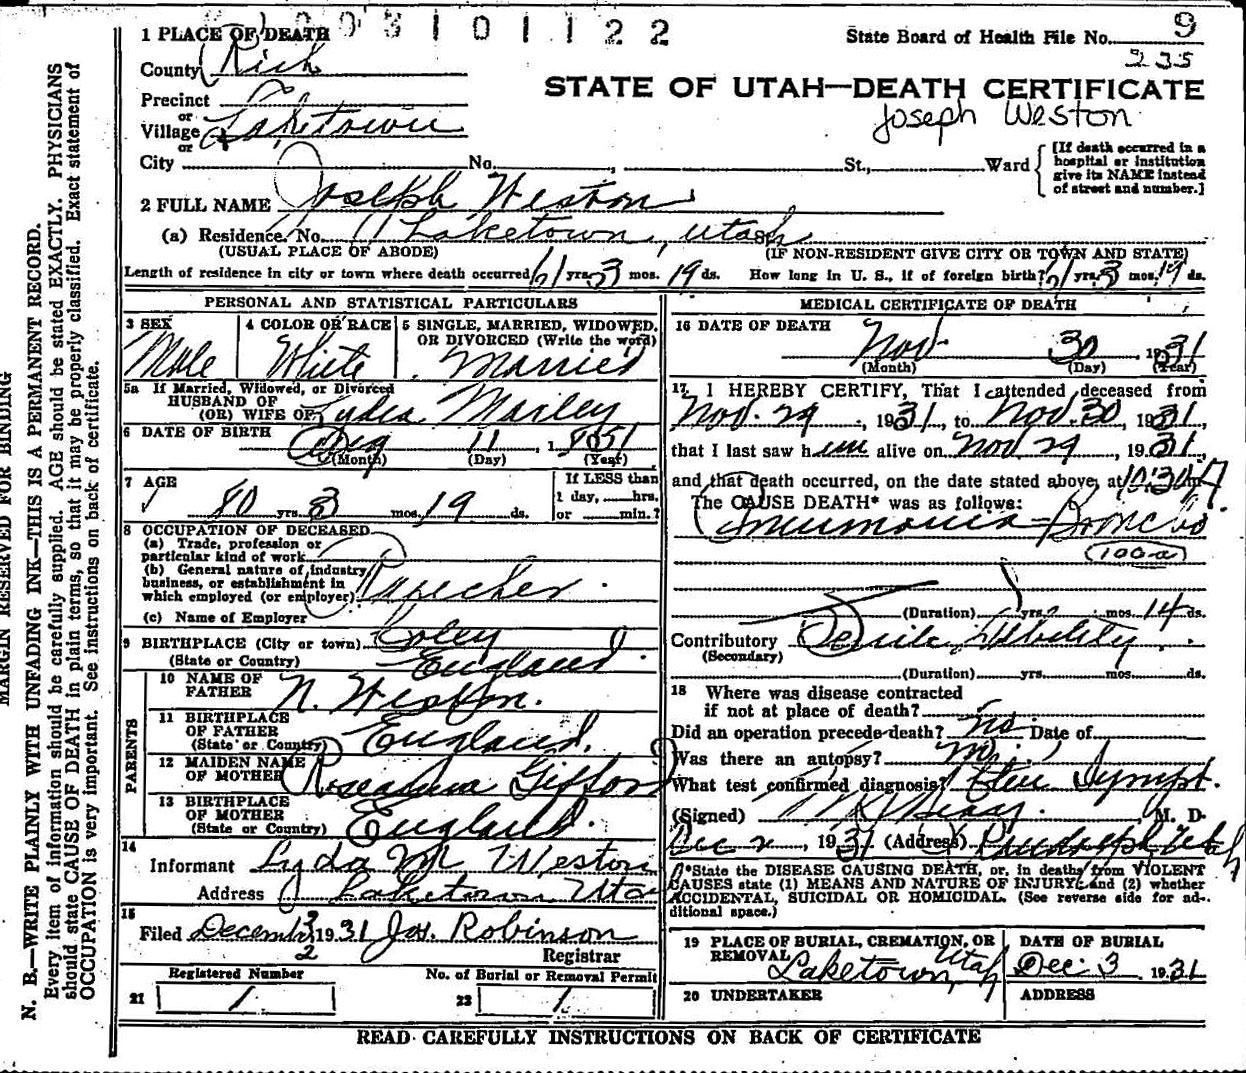 0 0 3 1 0 1 1 2 2
1 PLACE OF DEATH
State Board of Health File No. 9
235
County Rich
STATE OF UTAH—DEATH CERTIFICATE
Joseph Weston
Precinct
or
Village Laketown
or
City No. , St., Ward
[If death occurred in a hospital or institution give its NAME instead of street and number.]
2 FULL NAME Joseph Weston
(a) Residence. No. Laketown, Utah
(USUAL PLACE OF ABODE) (IF NON-RESIDENT GIVE CITY OR TOWN AND STATE)
Length of residence in city or town where death occurred 61 yrs. 3 mos. 19 ds. How long in U. S., if of foreign birth? 61 yrs. 3 mos. 19 ds.
PERSONAL AND STATISTICAL PARTICULARS
3 SEX
Male
4 COLOR OR RACE
White
5 SINGLE, MARRIED, WIDOWED, OR DIVORCED (Write the word)
Married
5a If Married, Widowed, or Divorced
HUSBAND OF
(OR) WIFE OF Lydia Marley
6 DATE OF BIRTH
Aug 11 , 1851
(Month) (Day) (Year)
7 AGE
80 yrs. 3 mos. 19 ds.
If LESS than
1 day, hrs.
or min.?
8 OCCUPATION OF DECEASED
(a) Trade, profession or
particular kind of work
(b) General nature of industry
business, or establishment in
which employed (or employer) Rancher
(c) Name of Employer
9 BIRTHPLACE (City or town) Coley
(State or Country) England
PARENTS
10 NAME OF
FATHER N. Weston.
11 BIRTHPLACE
OF FATHER
(State or Country) England.
12 MAIDEN NAME
OF MOTHER Roseanna Gifford
13 BIRTHPLACE
OF MOTHER
(State or Country) England.
14
Informant Lyda M Weston
Address Laketown Uta
15
Filed December 2 1931 Jos. Robinson
2 Registrar
Registered Number
21 1.
No. of Burial or Removal Permit
22 1.
MEDICAL CERTIFICATE OF DEATH
16 DATE OF DEATH
Nov. 30 , 1931
(Month) (Day) (Year)
17 I HEREBY CERTIFY, That I attended deceased from
Nov. 29 , 1931, to Nov. 30, 1931,
that I last saw him alive on Nov 29 , 1931,
and that death occurred, on the date stated above, at 10:30 A m
The CAUSE DEATH* was as follows:
Pneumonia - Broncho
(100-a)
(Duration) yrs. mos. 14 ds.
Contributory Senile Debility
(Secondary)
(Duration) yrs. mos. ds.
18 Where was disease contracted
if not at place of death?
Did an operation precede death? no. Date of
Was there an autopsy? no.
What test confirmed diagnosis? Clin Sympt.
(Signed) , M. D.
Dec 2 , 1931 (Address) Randolph Utah
*State the DISEASE CAUSING DEATH, or, in deaths from VIOLENT
CAUSES state (1) MEANS AND NATURE OF INJURY; and (2) whether
ACCIDENTAL, SUICIDAL OR HOMICIDAL. (See reverse side for additional space.)
19 PLACE OF BURIAL, CREMATION, OR
REMOVAL Laketown, Utah
DATE OF BURIAL
Dec. 3 , 1931
20 UNDERTAKER
ADDRESS
READ CAREFULLY INSTRUCTIONS ON BACK OF CERTIFICATE
MARGIN RESERVED FOR BINDING
N. B.—WRITE PLAINLY WTH UNFADING INK—THIS IS A PERMANENT RECORD.
Every item of information should be carefully supplied. AGE should be stated EXACTLY. PHYSICIANS
should state CAUSE OF DEATH in plain terms, so that it may be properly classified. Exact statement of
OCCUPATION is very important. See instructions on back of certificate.